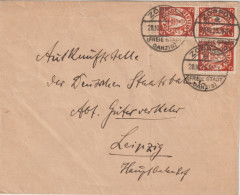 ZOPPOT
(FREIE STADT
DANZIG)
ZOPPOT
(FREIE STADT
DANZIG)
Auskunftsstelle
der Deutschen Staatsbahn
Abt. Güterverkehr
Leipzig
Hauptbahnhof